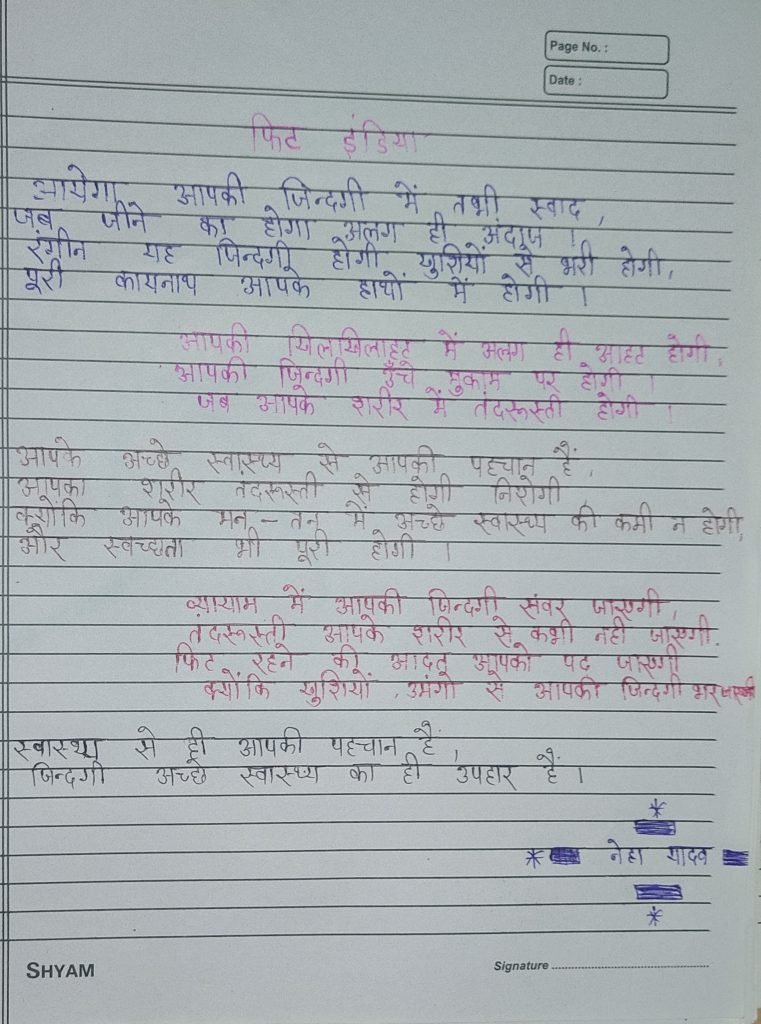 Page No. :
Date :
फिट इंडिया
आयेगा आपकी जिन्दगी में तभी स्वाद,
जब जीने का होगा अलग ही अंदाज ।
रंगीन यह जिन्दगी होगी खुशियों से भरी होगी,
पूरी कायनाथ आपके हाथों में होगी ।
आपकी खिलखिलाहट में अलग ही आहट होगी,
आपकी जिन्दगी उँचे मुकाम पर होगी ।
जब आपके शरीर में तंदरूस्ती होगी ।
आपके अच्छे स्वास्थ्य से आपकी पहचान हैं,
आपका शरीर तंदरूस्ती से होगी निरोगी,
क्योंकि आपके मन - तन में अच्छे स्वास्थ्य की कमी न होगी,
और स्वच्छता भी पूरी होगी ।
व्यायाम में आपकी जिन्दगी संवर जाएगी,
तंदरूस्ती आपके शरीर से कभी नही जाएगी,
फिट रहने की आदत आपको पद जाएगी
क्योंकि खुशियों, उमंगो से आपकी जिन्दगी भर जाएगी
स्वास्थ्य से ही आपकी पहचान हैं,
जिन्दगी अच्छे स्वास्थ्य का ही उपहार हैं ।
*
* नेहा यादव
*
SHYAM
Signature